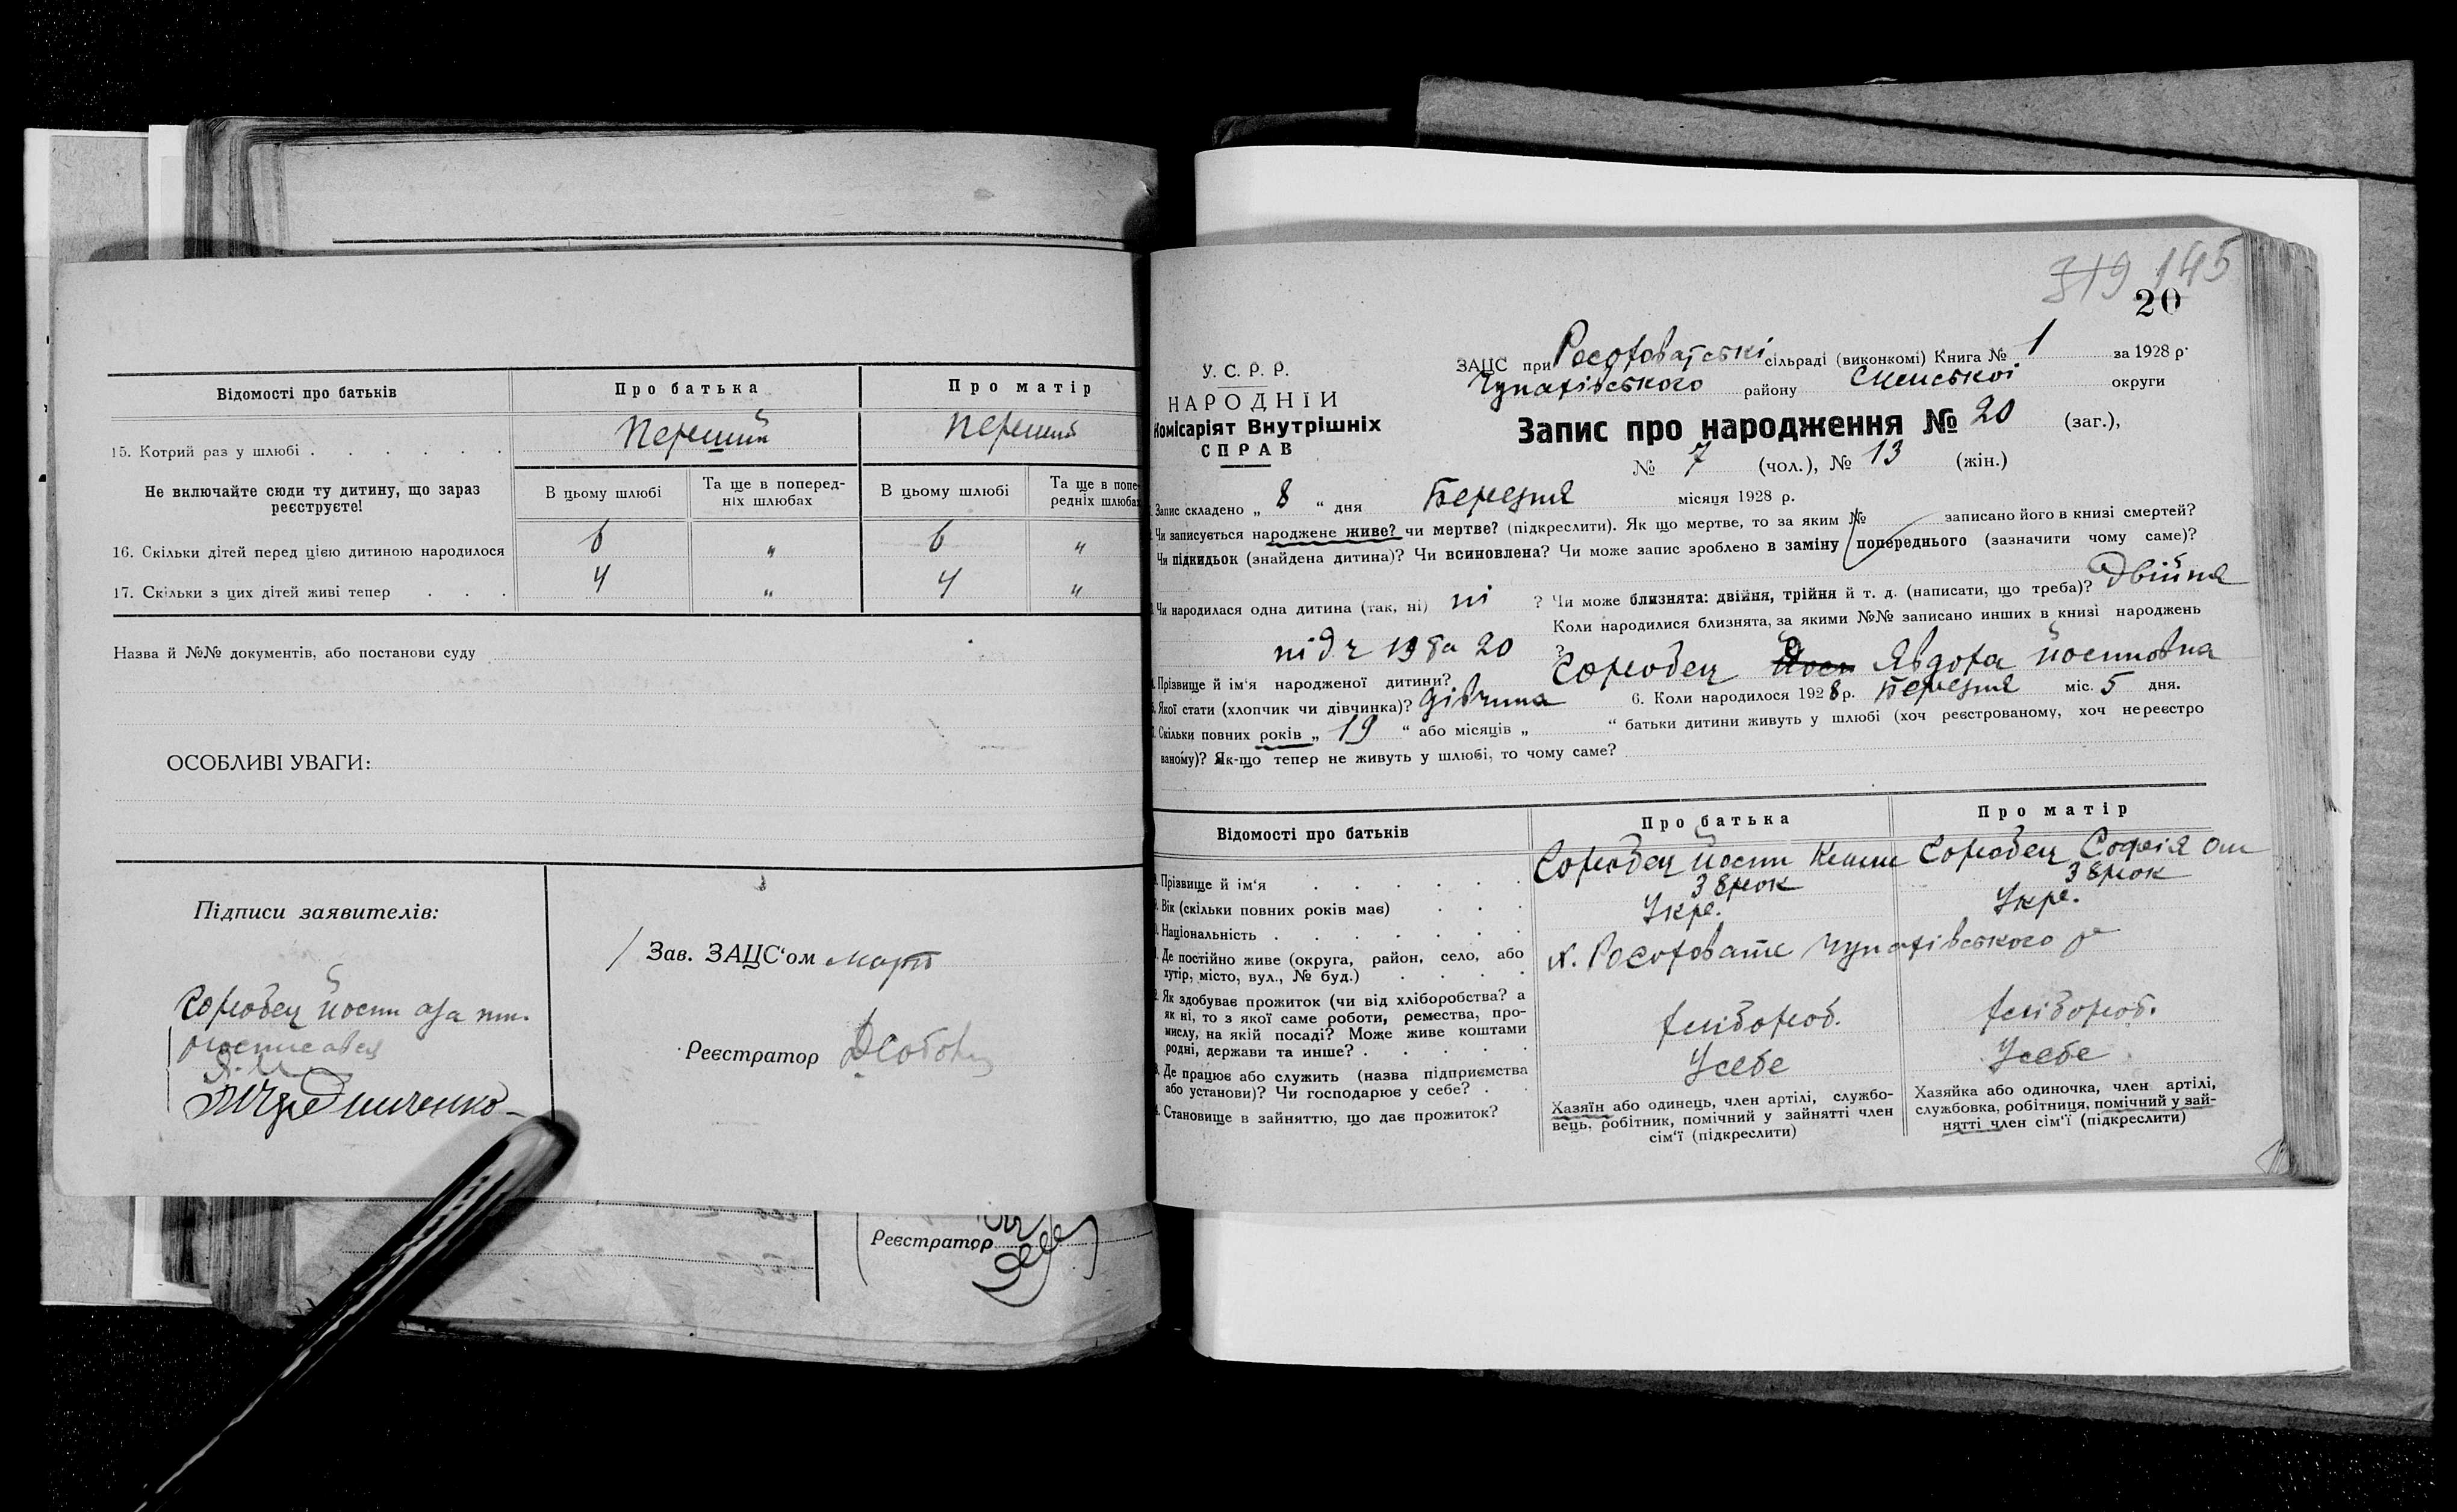 Відомості про батьків
Про батька
Про матір
15. Котрий раз у шлюбі
Перший
Перший
Не включайте сюди ту дитину, що зараз
реєструєте!
В цьому шлюбі
Та ще в поперед-
ніх шлюбах
В цьому шлюбі
Та ще в попе-
редніх шлюбах
16. Скільки дітей перед цією дитиною народилося
6
"
6
"
17. Скільки з цих дітей живі тепер
4
"
4
"
Назва й №№ документів, або постанови суду
ОСОБЛИВІ УВАГИ:
Підписи заявителів:
йосип
росписався
Зав. ЗАЦС'ом
Реєстратор
Реєстратор
319 145
20
У. С. Р. Р.
НАРОДНІЙ
Комісаріят Внутрішніх
СПРАВ
ЗАЦС при сільраді (виконкомі) Книга № 1 за 1928 р.
району округи
Запис про народження № 20 (заг.),
№ 7 (чол.), № 13 (жін.)
Запис складено „ 8 " дня Березня місяця 1928 р.
Чи записується народжене живе? чи мертве? (підкреслити). Як що мертве, то за яким № записано його в книзі смертей?
Чи підкидьок (знайдена дитина)? Чи всиновлена? Чи може запис зроблено в заміну попереднього (зазначити чому саме)?
Чи народилася одна дитина (так, ні) ні ? Чи може близнята: двійня, трійня й т. д. (написати, що треба)? Двійня
Коли народилися близнята, за якими №№ записано инших в книзі народжень
під ч 19 та 20 ?
Прізвище й ім'я народженої дитини? Явдоха йосиповна
Якої стати (хлопчик чи дівчинка)? дівчина 6. Коли народилось 1928 р. Березня міс. 5 дня.
Скільки повних років „ 19 " або місяців „ " батьки дитини живуть у шлюбі (хоч реєстрованому, хоч нереєстро
ваному)? Як-що тепер не живуть у шлюбі, то чому саме?
Відомості про батьків
Про батька
Про матір
Прізвище й ім'я
йосип
Софія
Вік (скільки повних років має)
38 рок
38 рок
Національність
Укр.
Укр.
Де постійно живе (округа, район, село, або
хутір, місто, вул., № буд.)
Як здобуває прожиток (чи від хліборобства? а
як ні, то з якої саме роботи, ремества, про-
мислу, на якій посаді? Може живе коштами
родні, держави та инше?
хлібороб.
хлібороб.
Де працює або служить (назва підприємства
або установи)? Чи господарює у себе?
Усебе
Усебе
Становище в зайняттю, що дає прожиток?
Хазяїн або одинець, член артілі, службо-
вець, робітник, помічний у зайнятті член
сім'ї (підкреслити)
Хазяйка або одиночка, член артілі,
службовка, робітниця, помічний у зай-
нятті член сім'ї (підкреслити)